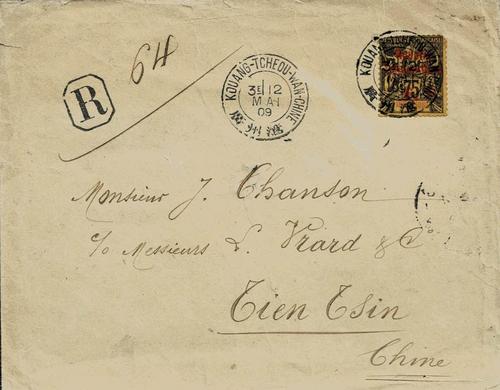 64
R
KOUANG-TCHEOU-WAN-CHINE
3E 12
MAI
09
廣州灣
KOUANG
75
Monsieur J. Chanson
c/o Messieurs L. Vrard & C
Tien Tsin
Chine